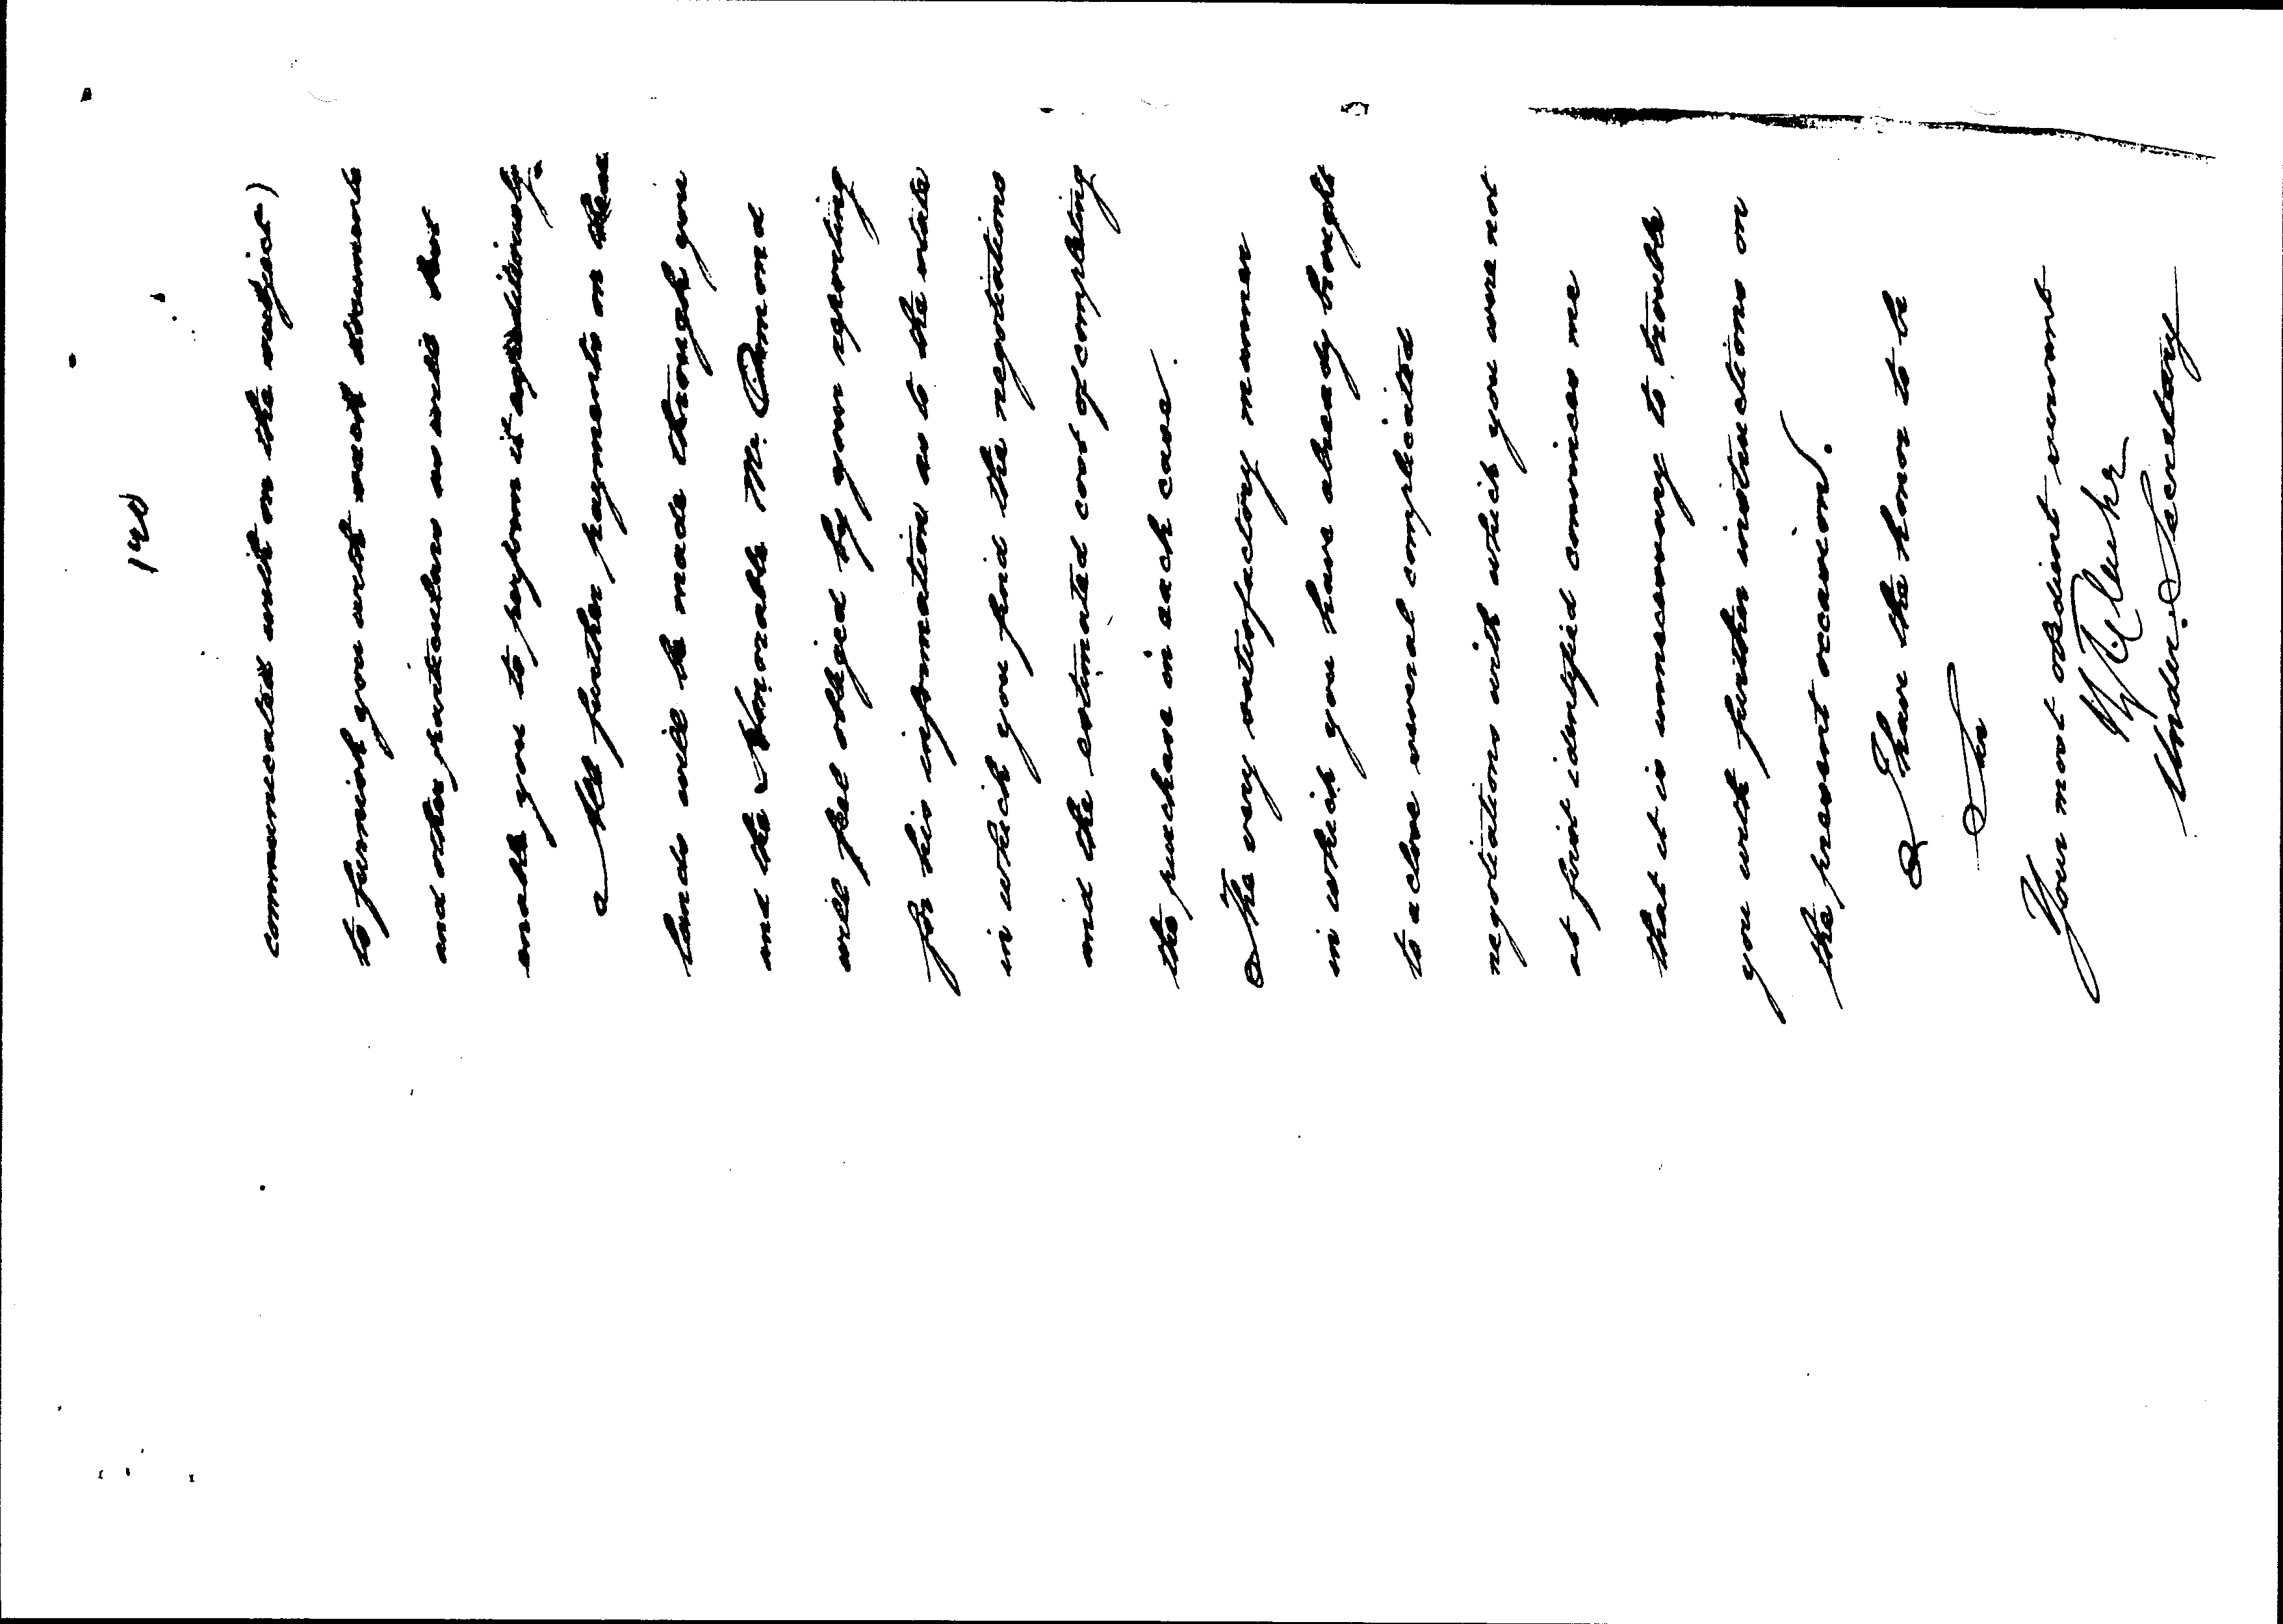 140
communicated with on the subject)
to furnish you with such documents
and other particulars as will best
enable you to perform it expeditiously.
All further payments on these
lands will be made through you
and the Honorable Mr. Ormond
will feel obliged by your reporting
for his information as to the state
in which you find the negotiations
and the estimated cost of completing
the purchase in each case.
The very satisfactory manner
in which you have already brought
to a close several complicated
negotiations with which you were not
at first identified convinces me
that it is unnecessary to trouble
you with further instructions on
the present occasion.
I have the honor to be
Sir
Your most obedient servant
Under Secretary